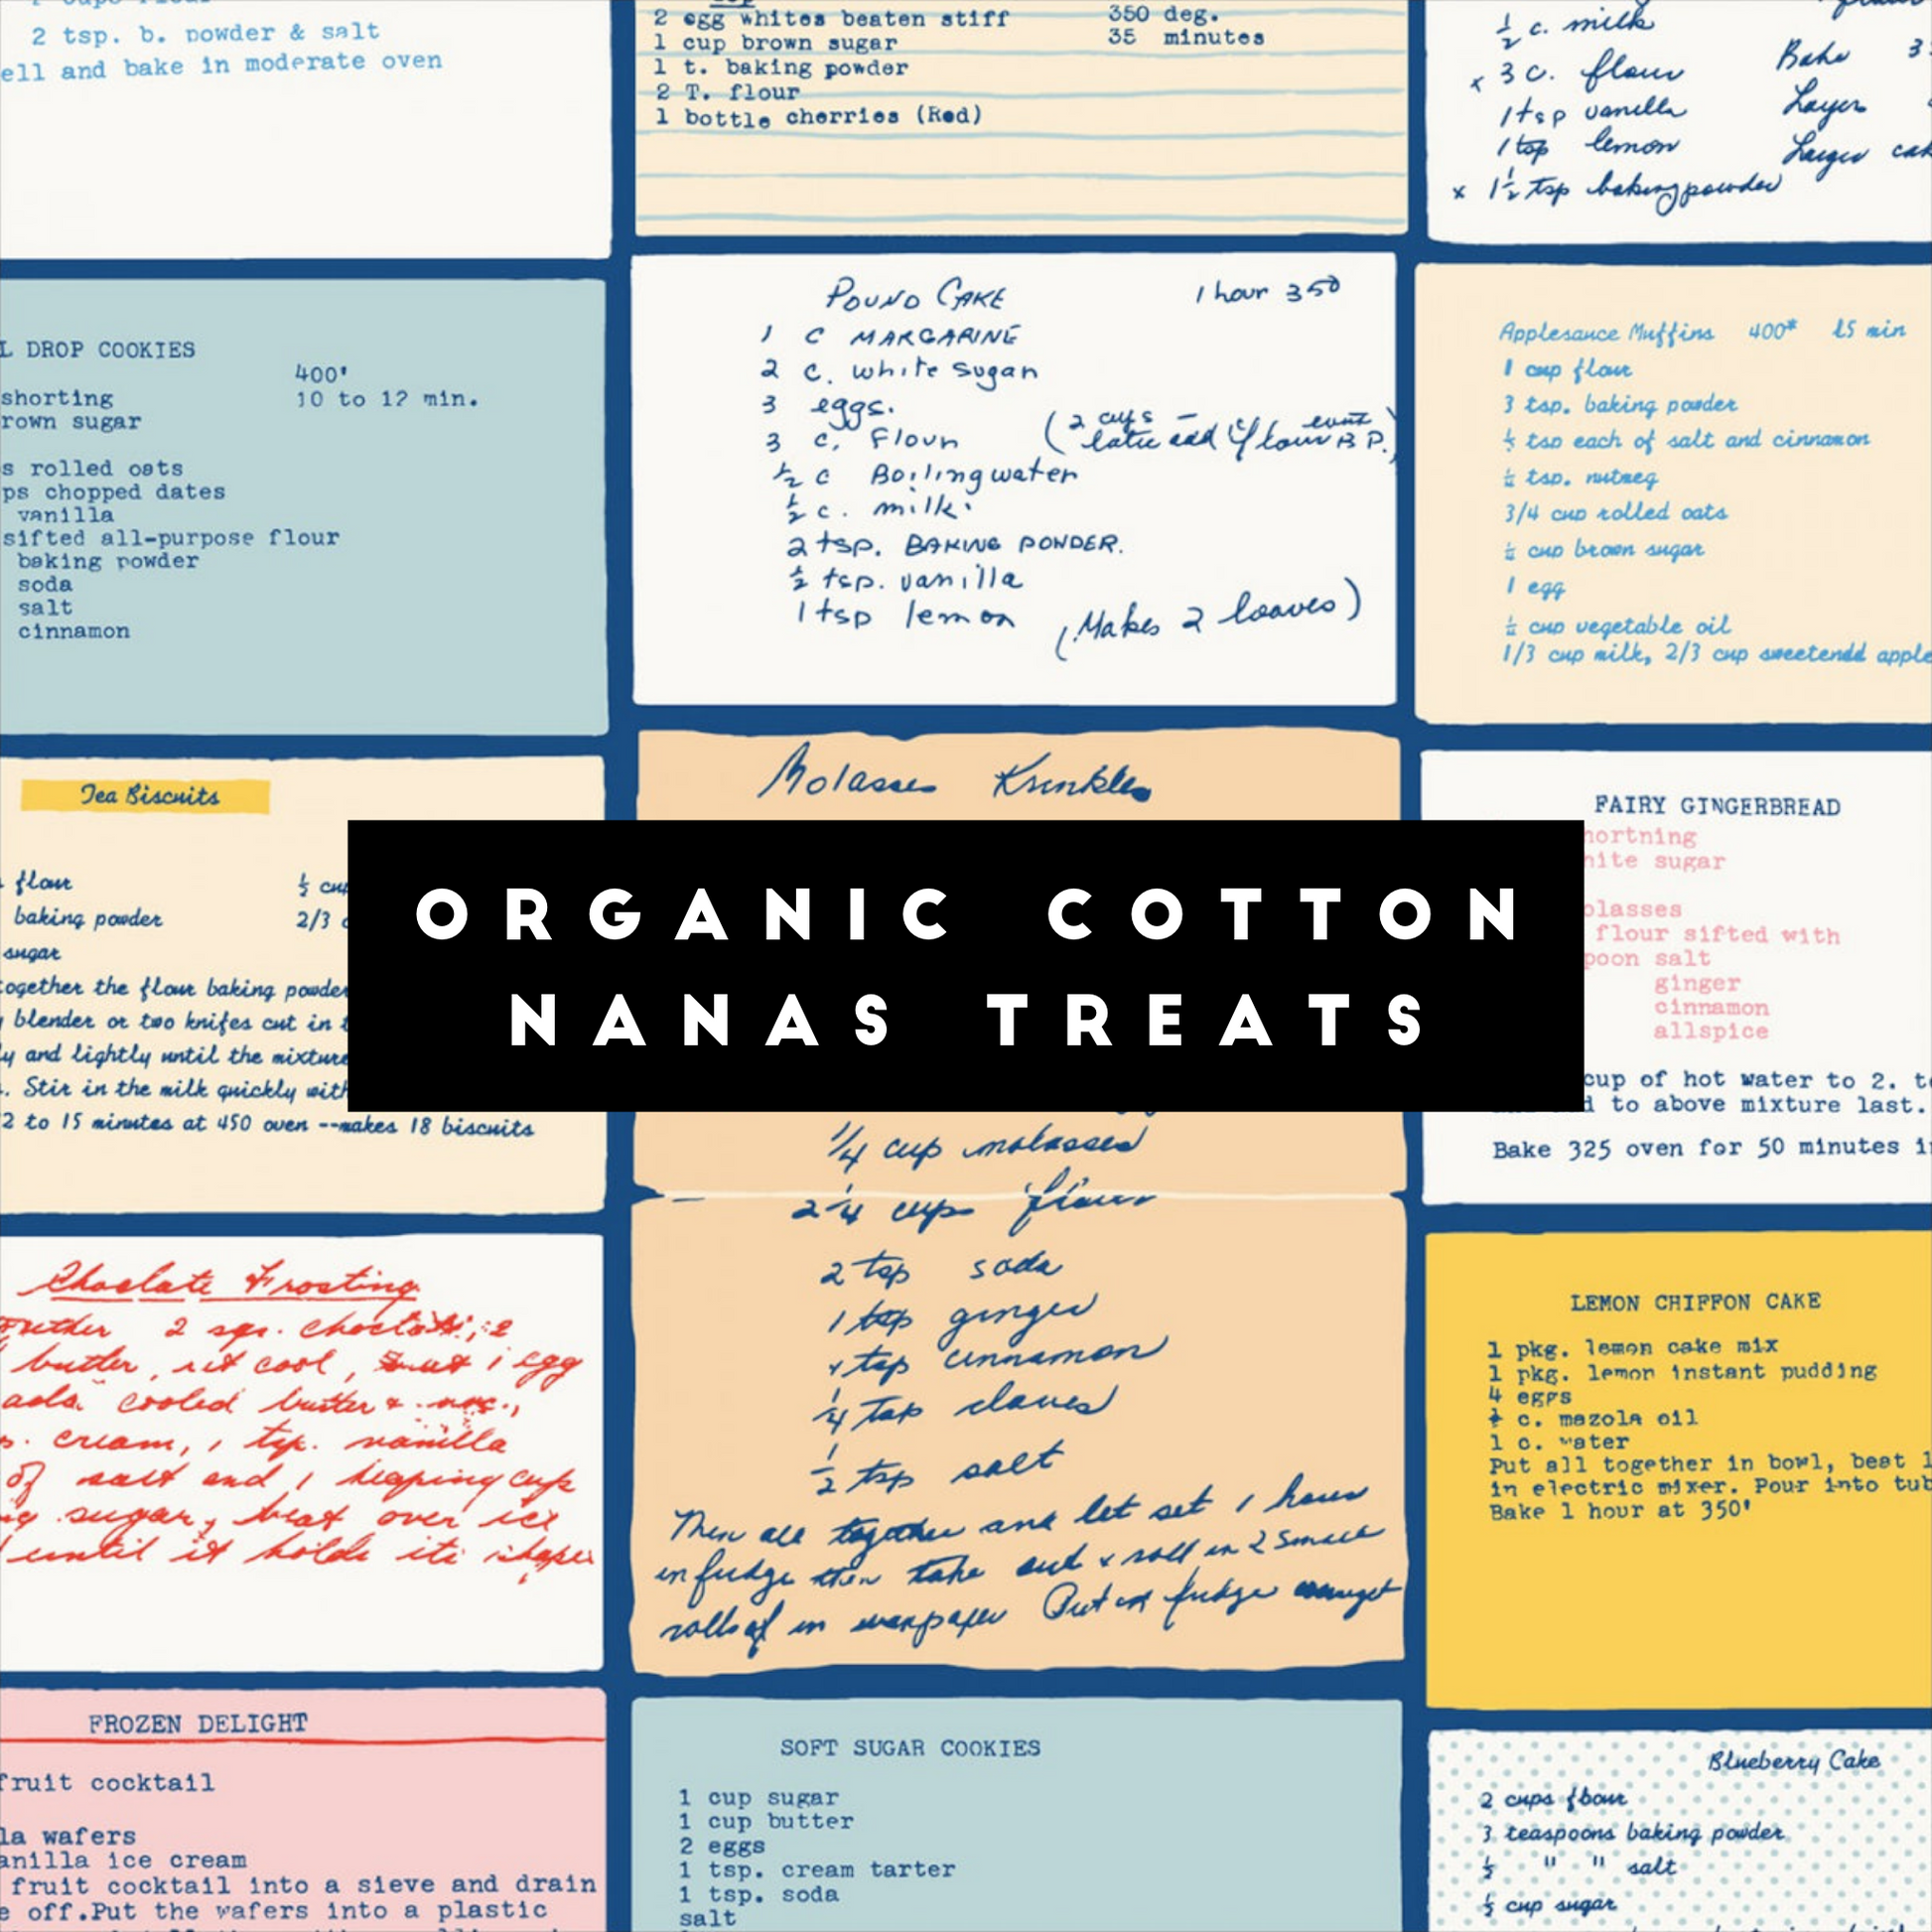 2 tsp. b. powder & salt
ell and bake in moderate oven
2 egg whites beaten stiff 350 deg.
1 cup brown sugar 35 minutes
1 t. baking powder
2 T. flour
1 bottle cherries (Red)
½ c. milk
x 3 c. flour Bake 3
1 tsp vanilla Layer
1 tsp lemon Larger cak
x 1½ tsp baking powder
L DROP COOKIES
400'
shorting 10 to 12 min.
rown sugar
s rolled oats
ps chopped dates
vanilla
sifted all-purpose flour
baking powder
soda
salt
cinnamon
POUND CAKE 1 hour 350
1 C MARGARINE
2 c. white sugar
3 eggs.
3 c. Flour (2 cups
½ c Boiling water
½ c. milk
2 tsp. BAKING POWDER.
½ tsp. vanilla
1 tsp lemon (Makes 2 loaves)
Applesauce Muffins 400° 15 min
1 cup flour
3 tsp. baking powder
½ tsp each of salt and cinnamon
tsp. nutmeg
3/4 cup rolled oats
cup brown sugar
1 egg
cup vegetable oil
1/3 cup milk, 2/3 cup sweetendd apple
Tea Biscuits
flour ½ cup
baking powder 2/3 c
sugar
ogether the flour baking powder
blender or two knifes cut in t
ly and lightly until the mixture
. Stir in the milk quickly with
2 to 15 minutes at 450 oven --makes 18 biscuits
Molasses Krinkles
ORGANIC COTTON
NANAS TREATS
¼ cup molasses
2¼ cups flour
2 tsp soda
1 tsp ginger
1 tsp cinnamon
¼ tsp cloves
½ tsp salt
all together and let set 1 hour
in fudge then take out & roll in 2 small
rolls in waxpaper Put in fudge
FAIRY GINGERBREAD
hortning
hite sugar
olasses
flour sifted with
poon salt
ginger
cinnamon
allspice
cup of hot water to 2. t
d to above mixture last.
Bake 325 oven for 50 minutes i
Choclate Frosting
2 sqs.
butter, let cool, 1 egg
add cooled butter &
cream, 1 tsp. vanilla
of salt and 1 heaping cup
sugar, beat over ice
until it holds its shape
LEMON CHIFFON CAKE
1 pkg. lemon cake mix
1 pkg. lemon instant pudding
4 eggs
c. mazola oil
1 c. water
Put all together in bowl, beat 1
in electric mixer. Pour into tub
Bake 1 hour at 350'
FROZEN DELIGHT
fruit cocktail
la wafers
anilla ice cream
fruit cocktail into a sieve and drain
e off.Put the wafers into a plastic
SOFT SUGAR COOKIES
1 cup sugar
1 cup butter
2 eggs
1 tsp. cream tarter
1 tsp. soda
salt
Blueberry Cake
2 cups flour
3 teaspoons baking powder
½ " " salt
½ cup sugar